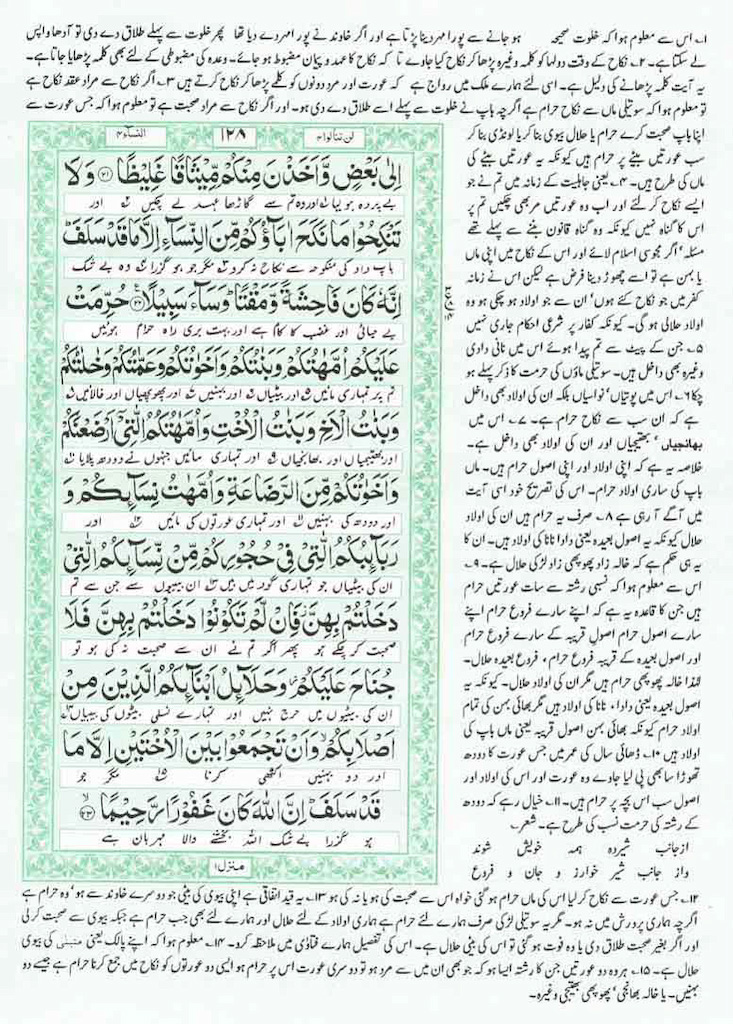 ۱۔ اس سے معلوم ہوا کہ خلوت صحیحہ ہو جانے سے پورا مہر دینا پڑتا ہے اور اگر خاوند نے پورا مہر دے دیا تھا پھر خلوت سے پہلے طلاق دے دی تو آدھا واپس
لے سکتا ہے۔ ۲۔ نکاح کے وقت دولہا کو کلمہ وغیرہ پڑھا کر نکاح کیا جاوے تا کہ نکاح کا عہد و پیان مضبوط ہو جائے۔ وعدہ کی مضبوطی کے لئے بھی کلمہ پڑھایا جاتا ہے۔
یہ آیت کلمہ پڑھانے کی دلیل ہے۔ اسی لئے ہمارے ملک میں رواج ہے کہ عورت اور مرد دونوں کو کلمے پڑھا کر نکاح کرتے ہیں ۳۔ اگر نکاح سے مراد عقد نکاح ہے
تو معلوم ہوا کہ سوتیلی ماں سے نکاح حرام ہے اگرچہ باپ نے خلوت سے پہلے اسے طلاق دے دی ہو۔ اور اگر نکاح سے مراد صحبت ہے تو معلوم ہوا کہ جس عورت سے
اپنا باپ صحبت کرے حرام یا حلال بیوی بنا کر یا لونڈی بنا کر
سب عورتیں بیٹے پر حرام ہیں کیونکہ یہ عورتیں بیٹے کی
ماں کی طرح ہیں۔ ۴۔ یعنی جاہلیت کے زمانہ میں تم نے جو
ایسے نکاح کر لئے اور اب وہ عورتیں مر بھی چکیں تم پر
اس کا گناہ نہیں کیونکہ وہ گناہ قانون بننے سے پہلے تھے
مسئلہ ٗ اگر مجوسی اسلام لائے اور اس کے نکاح میں اپنی ماں
یا بہن ہے تو اسے چھوڑ دینا فرض ہے لیکن اس نے زمانہ
کفر میں جو نکاح کئے ہوں ٗ ان سے جو اولاد ہو چکی ہو وہ
اولاد حلالی ہو گی۔ کیونکہ کفار پر شرعی احکام جاری نہیں
۵۔ جن کے پیٹ سے تم پیدا ہوئے اس میں نانی دادی
وغیرہ بھی داخل ہیں۔ سوتیلی ماؤں کی حرمت کا ذکر پہلے ہو
چکا ۶۔ اس میں پوتیاں ٗ نواسیاں بلکہ ان کی اولاد بھی داخل
ہے کہ ان سب سے نکاح حرام ہے۔ ۷۔ اس میں
بھانجیاں ٗ بھتیجیاں اور ان کی اولاد بھی داخل ہے۔
خلاصہ یہ ہے کہ اپنی اولاد اور اپنی اصول حرام ہیں۔ ماں
باپ کی ساری اولاد حرام۔ اس کی تصریح خود اسی آیت
میں آگے آ رہی ہے ۸۔ صرف یہ حرام ہیں ان کی اولاد
حلال کیونکہ یہ اصول بعیدہ یعنی دادا نانا کی اولاد ہیں۔ ان کا
یہ ہی حکم ہے کہ خالہ زاد پھوپھی زاد لڑکی حلال ہے۔ ۹۔
اس سے معلوم ہوا کہ نسبی رشتہ سے سات عورتیں حرام
ہیں جن کا قاعدہ یہ ہے کہ اپنے سارے فروع حرام اپنے
سارے اصول حرام اصول قریبہ کے سارے فروع حرام
اور اصول بعیدہ کے قریبہ فروع حرام ٗ فروع بعیدہ حلال۔
لہٰذا خالہ پھوپھی حرام ہیں مگر ان کی اولاد حلال۔ کیونکہ یہ
اصول بعیدہ یعنی دادا ٗ نانا کی اولاد ہیں مگر بھائی بہن کی تمام
اولاد حرام کیونکہ بھائی بہن اصول قریبہ یعنی ماں باپ کی
اولاد ہیں ۱۰۔ ڈھائی سال کی عمر میں جس عورت کا دودھ
تھوڑا سا بھی پی لیا جاوے وہ عورت اور اس کی اولاد اور
اصول سب اس بچہ پر حرام ہیں۔ ۱۱۔ خیال رہے کہ دودھ
کے رشتہ کی حرمت نسب کی طرح ہے۔ شعر۔
از جانب شیردہ ہمہ خویش شوند
واز جانب شیر خوارز و جان و فروع
النساء ۴ ۱۲۸ لن تنالوا ۴
اِلٰى بَعْضٍ وَّاَخَذْنَ مِنْكُمْ مِّيْثَاقًا غَلِيْظًا ﴿۲۱﴾ وَلَا
بے پردہ ہو لیا ۱ اور وہ تم سے گاڑھا عہد لے چکیں ۲ اور
تَنْكِحُوْا مَا نَكَحَ اٰبَآؤُكُمْ مِّنَ النِّسَآءِ اِلَّا مَا قَدْ سَلَفَ ؕ
باپ دادا کی منکوحہ سے نکاح نہ کرو ۳ مگر جو ہو گزرا ۴ وہ بے شک
اِنَّهٗ كَانَ فَاحِشَةً وَّمَقْتًا ؕ وَسَآءَ سَبِيْلًا ﴿۲۲﴾ حُرِّمَتْ
بے حیائی اور غضب کا کام ہے اور بہت بری راہ حرام ہوئیں
عَلَيْكُمْ اُمَّهٰتُكُمْ وَبَنٰتُكُمْ وَاَخَوٰتُكُمْ وَعَمّٰتُكُمْ وَخٰلٰتُكُمْ
تم پر تمہاری مائیں ۵ اور بیٹیاں ۶ اور بہنیں ۷ اور پھوپھیاں اور خالائیں ۸
وَبَنٰتُ الْاَخِ وَبَنٰتُ الْاُخْتِ وَاُمَّهٰتُكُمُ الّٰتِيْٓ اَرْضَعْنَكُمْ
اور بھتیجیاں اور بھانجیاں ۹ اور تمہاری مائیں جنہوں نے دودھ پلایا ۱۰
وَاَخَوٰتُكُمْ مِّنَ الرَّضَاعَةِ وَاُمَّهٰتُ نِسَآئِكُمْ وَ
اور دودھ کی بہنیں ۱۱ اور تمہاری عورتوں کی مائیں ۱۲ اور
رَبَآئِبُكُمُ الّٰتِيْ فِيْ حُجُوْرِكُمْ مِّنْ نِّسَآئِكُمُ الّٰتِيْ
ان کی بیٹیاں جو تمہاری گود میں ہیں ۱۳ ان بیبیوں سے جن سے تم
دَخَلْتُمْ بِهِنَّ ؗ فَاِنْ لَّمْ تَكُوْنُوْا دَخَلْتُمْ بِهِنَّ فَلَا
صحبت کر چکے ہو پھر اگر تم نے ان سے صحبت نہ کی ہو تو
جُنَاحَ عَلَيْكُمْ ؗ وَحَلَآئِلُ اَبْنَآئِكُمُ الَّذِيْنَ مِنْ
ان کی بیٹیوں میں حرج نہیں اور تمہارے نسلی بیٹوں کی بیبیاں ۱۴
اَصْلَابِكُمْ ۙ وَاَنْ تَجْمَعُوْا بَيْنَ الْاُخْتَيْنِ اِلَّا مَا
اور دو بہنیں اکٹھی کرنا ۱۵ مگر جو
قَدْ سَلَفَ ؕ اِنَّ اللّٰهَ كَانَ غَفُوْرًا رَّحِيْمًا ﴿۲۳﴾
ہو گزرا بے شک اللہ بخشنے والا مہربان ہے
منزل ۱
۱۲۔ جس عورت سے نکاح کر لیا اس کی ماں حرام ہو گئی خواہ اس سے صحبت کی ہو یا نہ کی ہو ۱۳۔ یہ قید اتفاقی ہے اپنی بیوی کی بیٹی جو دوسرے خاوند سے ہو ٗ وہ حرام ہے
اگرچہ ہماری پرورش میں نہ ہو۔ مگر یہ سوتیلی لڑکی صرف ہمارے لئے حرام ہے ہماری اولاد کے لئے حلال اور ہمارے لئے بھی جب حرام ہے جبکہ بیوی سے صحبت کر لی
اور اگر بغیر صحبت طلاق دی یا وہ فوت ہو گئی تو اس کی بیٹی حلال ہے۔ اس کی تفصیل ہمارے فتاوٰی میں ملاحظہ کرو۔ ۱۴۔ معلوم ہوا کہ اپنے پالک یعنی متبنٰی کی بیوی
حلال ہے۔ ۱۵۔ ہر وہ دو عورتیں جن کا رشتہ ایسا ہو کہ جو بھی ان میں سے مرد ہو تو دوسری عورت اس پر حرام ہو ایسی دو عورتوں کو نکاح میں جمع کرنا حرام ہے جیسے دو
بہنیں۔ یا خالہ بھانجی ٗ پھوپھی بھتیجی وغیرہ۔